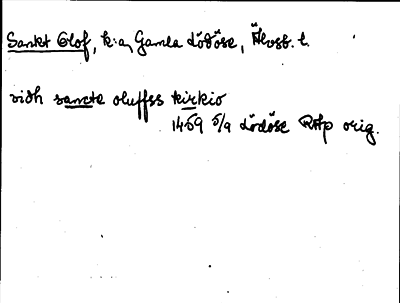 Sankt Olof, k:a, Gamla Lödöse, Älvsb. l.
vidh sancte oluffss kirkio
1459 5/9 Lödöse RAp orig.